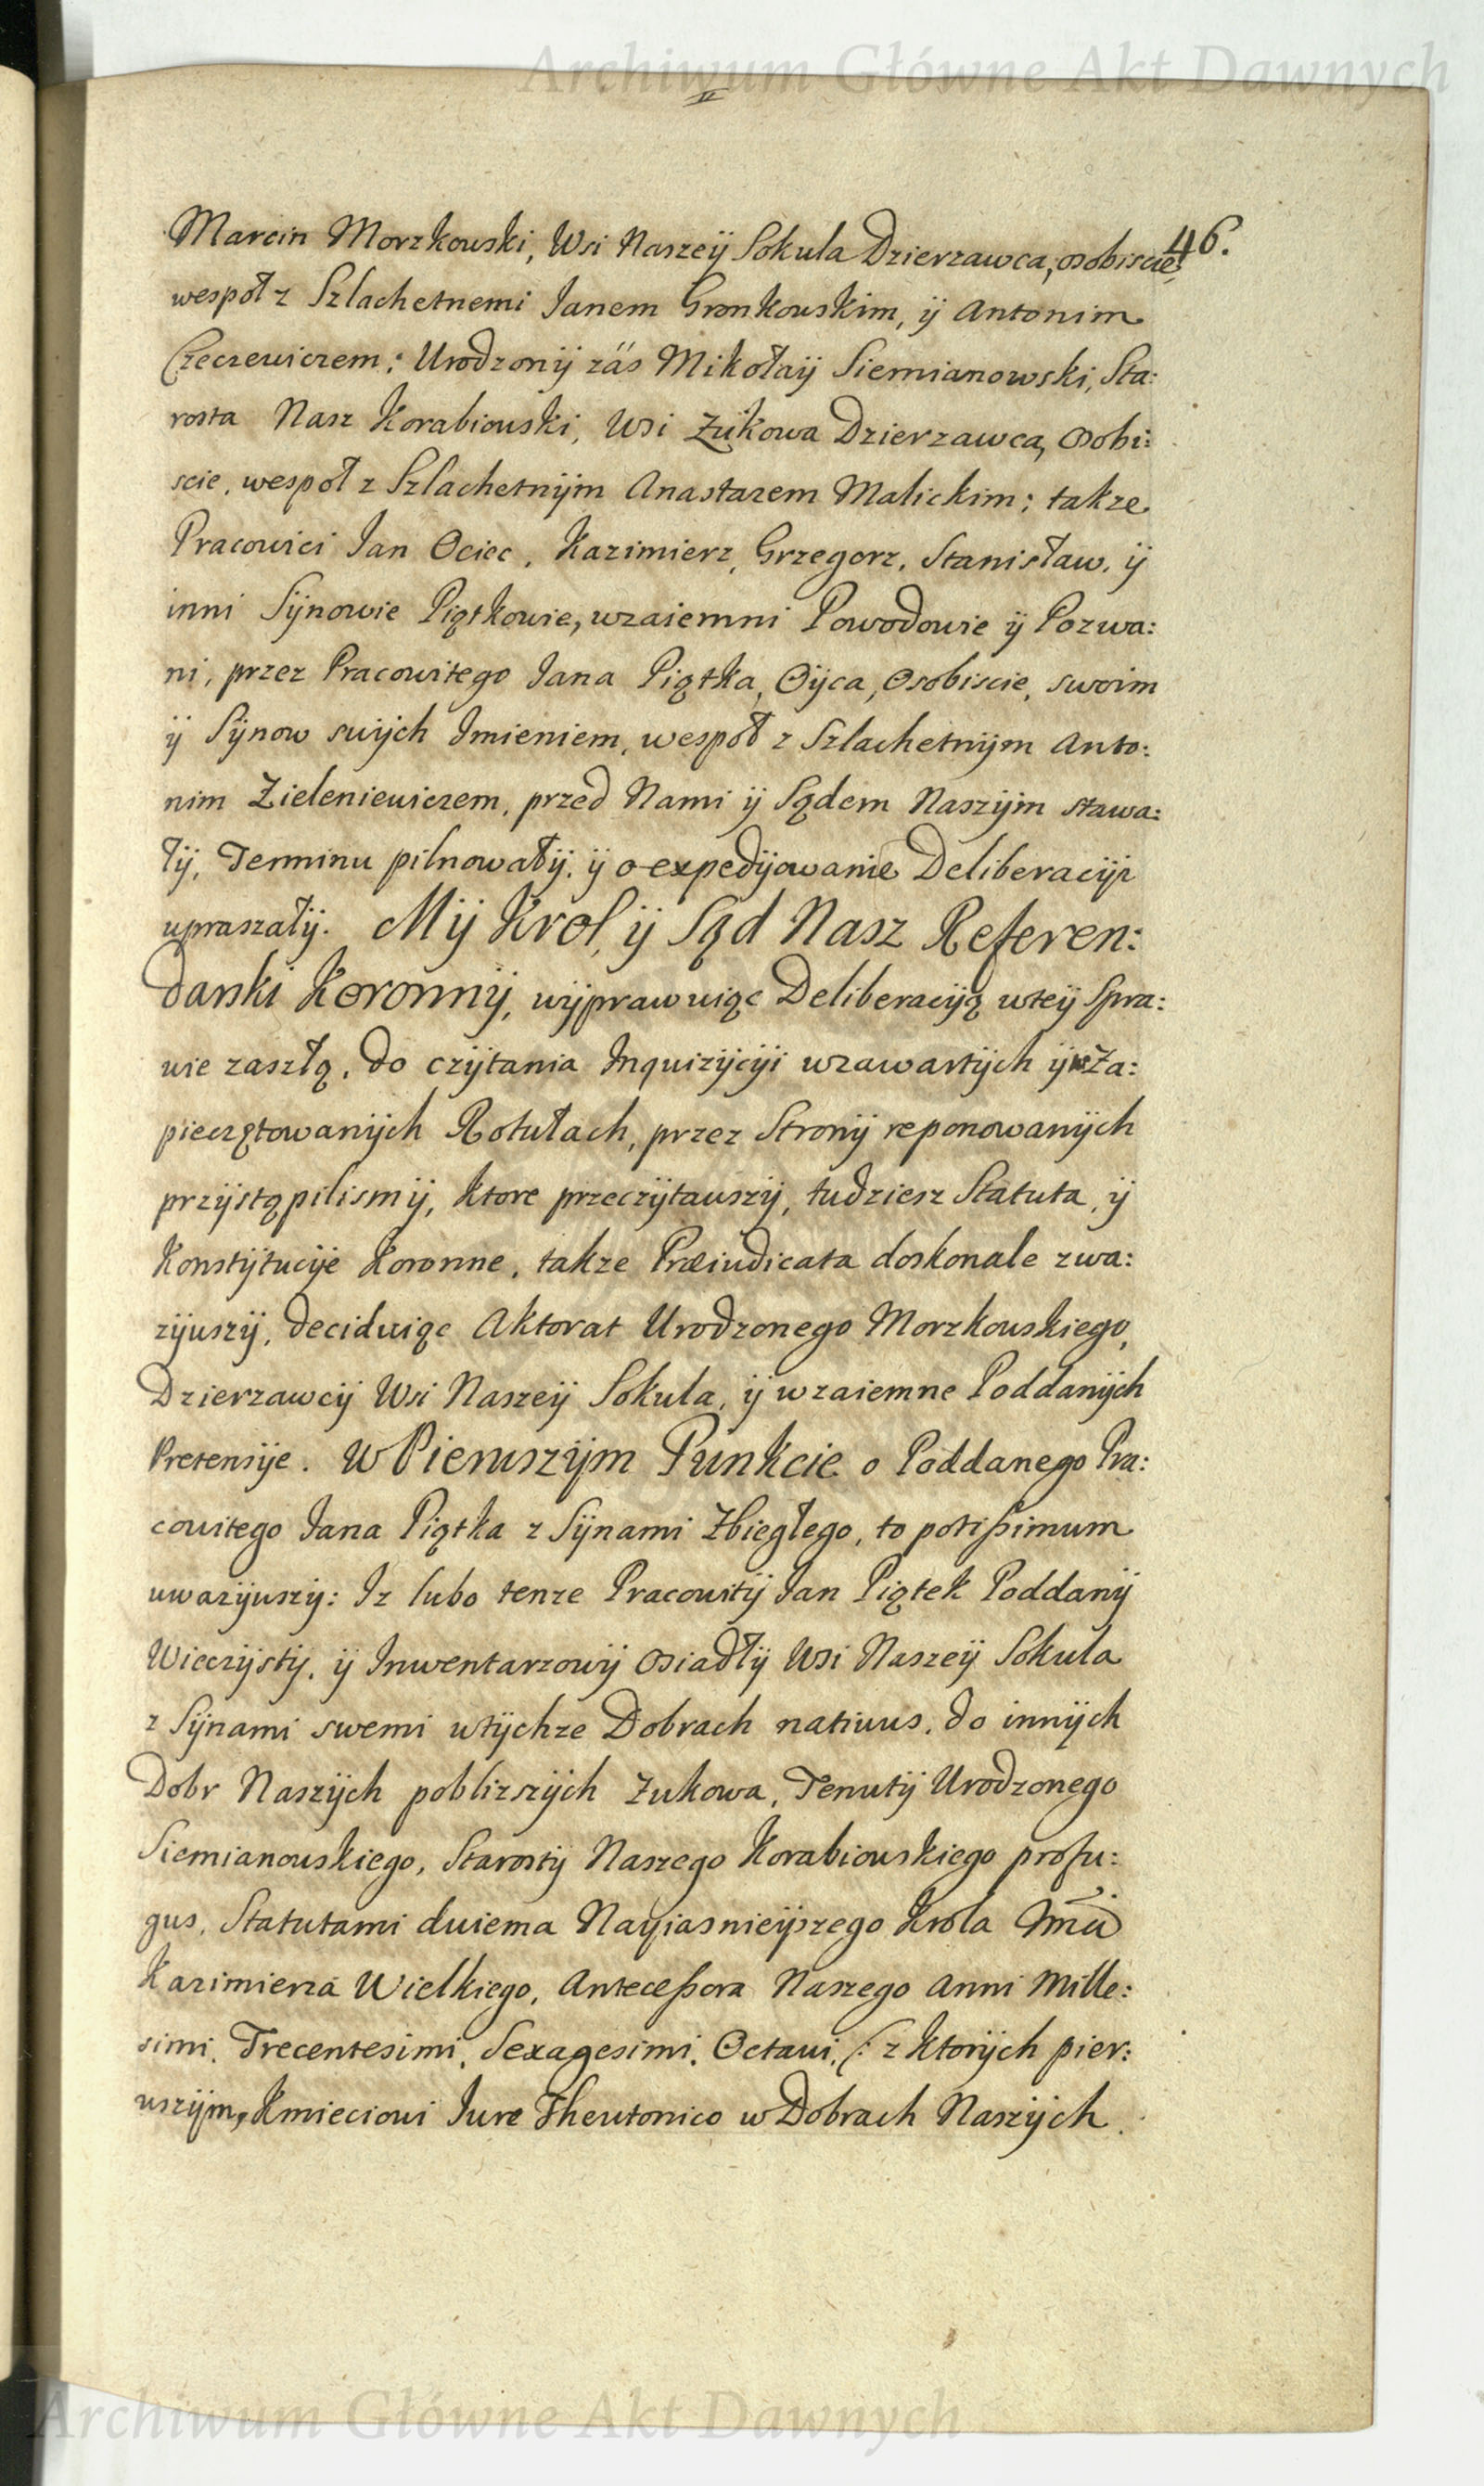 Archiwum Główne Akt Dawnych
46.
Marcin Morzkowski, Wsi Naszeÿ Sokula Dzierzawca, osobiscie,
wespoł z Szlachetnemi Janem Gronkowskim, ÿ Antonim
Czeczewiczem; Urodzonÿ zás Mikołaÿ Siemianowski, Sta:
rosta Nasz Korabiewski, Wsi Zukowa Dzierzawca, osobi:
scie, wespoł z Szlachetnÿm Anastazem Malickim; takze
Pracowici Jan Ociec, Kazimierz, Grzegorz, Stanisław, ÿ
inni Sÿnowie Piątkowie, wzaiemni Powodowie ÿ Pozwa:
ni, przez Pracowitego Jana Piątka, Oÿca, Osobiscie, swoim
ÿ Sÿnow swÿch Imieniem, wespoł z Szlachetnÿm Anto:
nim Zieleniewiczem, przed Nami ÿ Sądem Naszÿm stawa:
łÿ, Terminu pilnowałÿ, ÿ o expedÿowanie Deliberacÿi
upraszałÿ. Mÿ Krol, ÿ Sąd Nasz Referen:
darski Koronnÿ, wÿprawuiąc Deliberacÿą wteÿ Spra:
wie zaszłą, do czÿtania Inquizÿcÿi wzawartÿch ÿ Za:
pieczętowanÿch Rotułach, przez Stronÿ reponowanÿch
przÿstąpilismÿ, ktore przeczÿtawszÿ, tudziesz Statuta, ÿ
Konstÿtucÿe Koronne, takze Præiudicata doskonale zwa:
zÿwszÿ, deciduiąc Aktorat Urodzonego Morzkowskiego,
Dzierzawcÿ Wsi Naszeÿ Sokula, ÿ wzaiemne Poddanÿch
Pretensÿe. W Pierwszÿm Punkcie o Poddanego Pra:
cowitego Jana Piątka z Sÿnami Zbiegłego, to potißimum
uwazÿwszÿ: Iz lubo tenze Pracowitÿ Jan Piątek Poddanÿ
Wieczÿstÿ, ÿ Inwentarzowÿ osiadłÿ Wsi Naszeÿ Sokula
z Sÿnami swemi wtÿchze Dobrach nativus, do innÿch
Dobr Naszÿch poblizszÿch Zukowa, Tenutÿ Urodzonego
Siemianowskiego, Starostÿ Naszego Korabiewskiego profu:
gus, Statutami dwiema Naÿiasnieÿszego Krola Jmci
Kazimierza Wielkiego, Anteceßora Naszego Anni Mille:
simi, Trecentesimi, Sexagesimi, Octavi, (: z ktorÿch pier:
wszÿm, Kmieciowi Jure Theutonico w Dobrach Naszÿch
Archiwum Główne Akt Dawnych